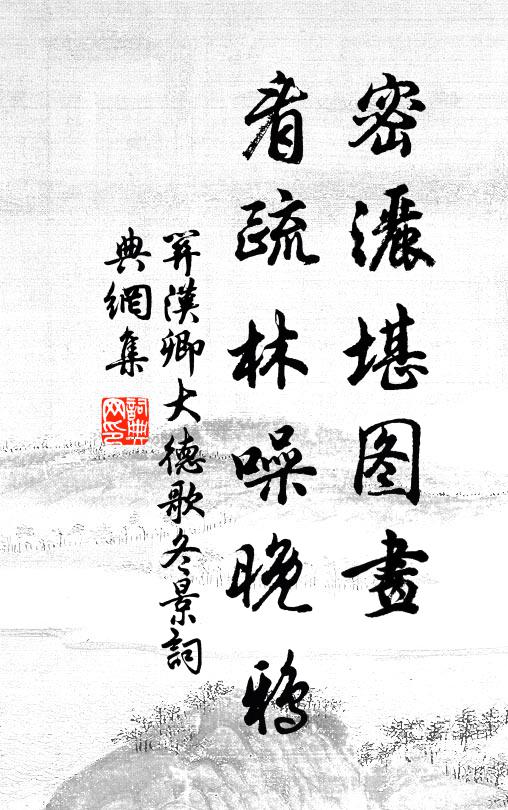 密灑堪图畫
看疏林噪晚鸦
关漢卿大德歌冬景詞
典網集
詞典
网印